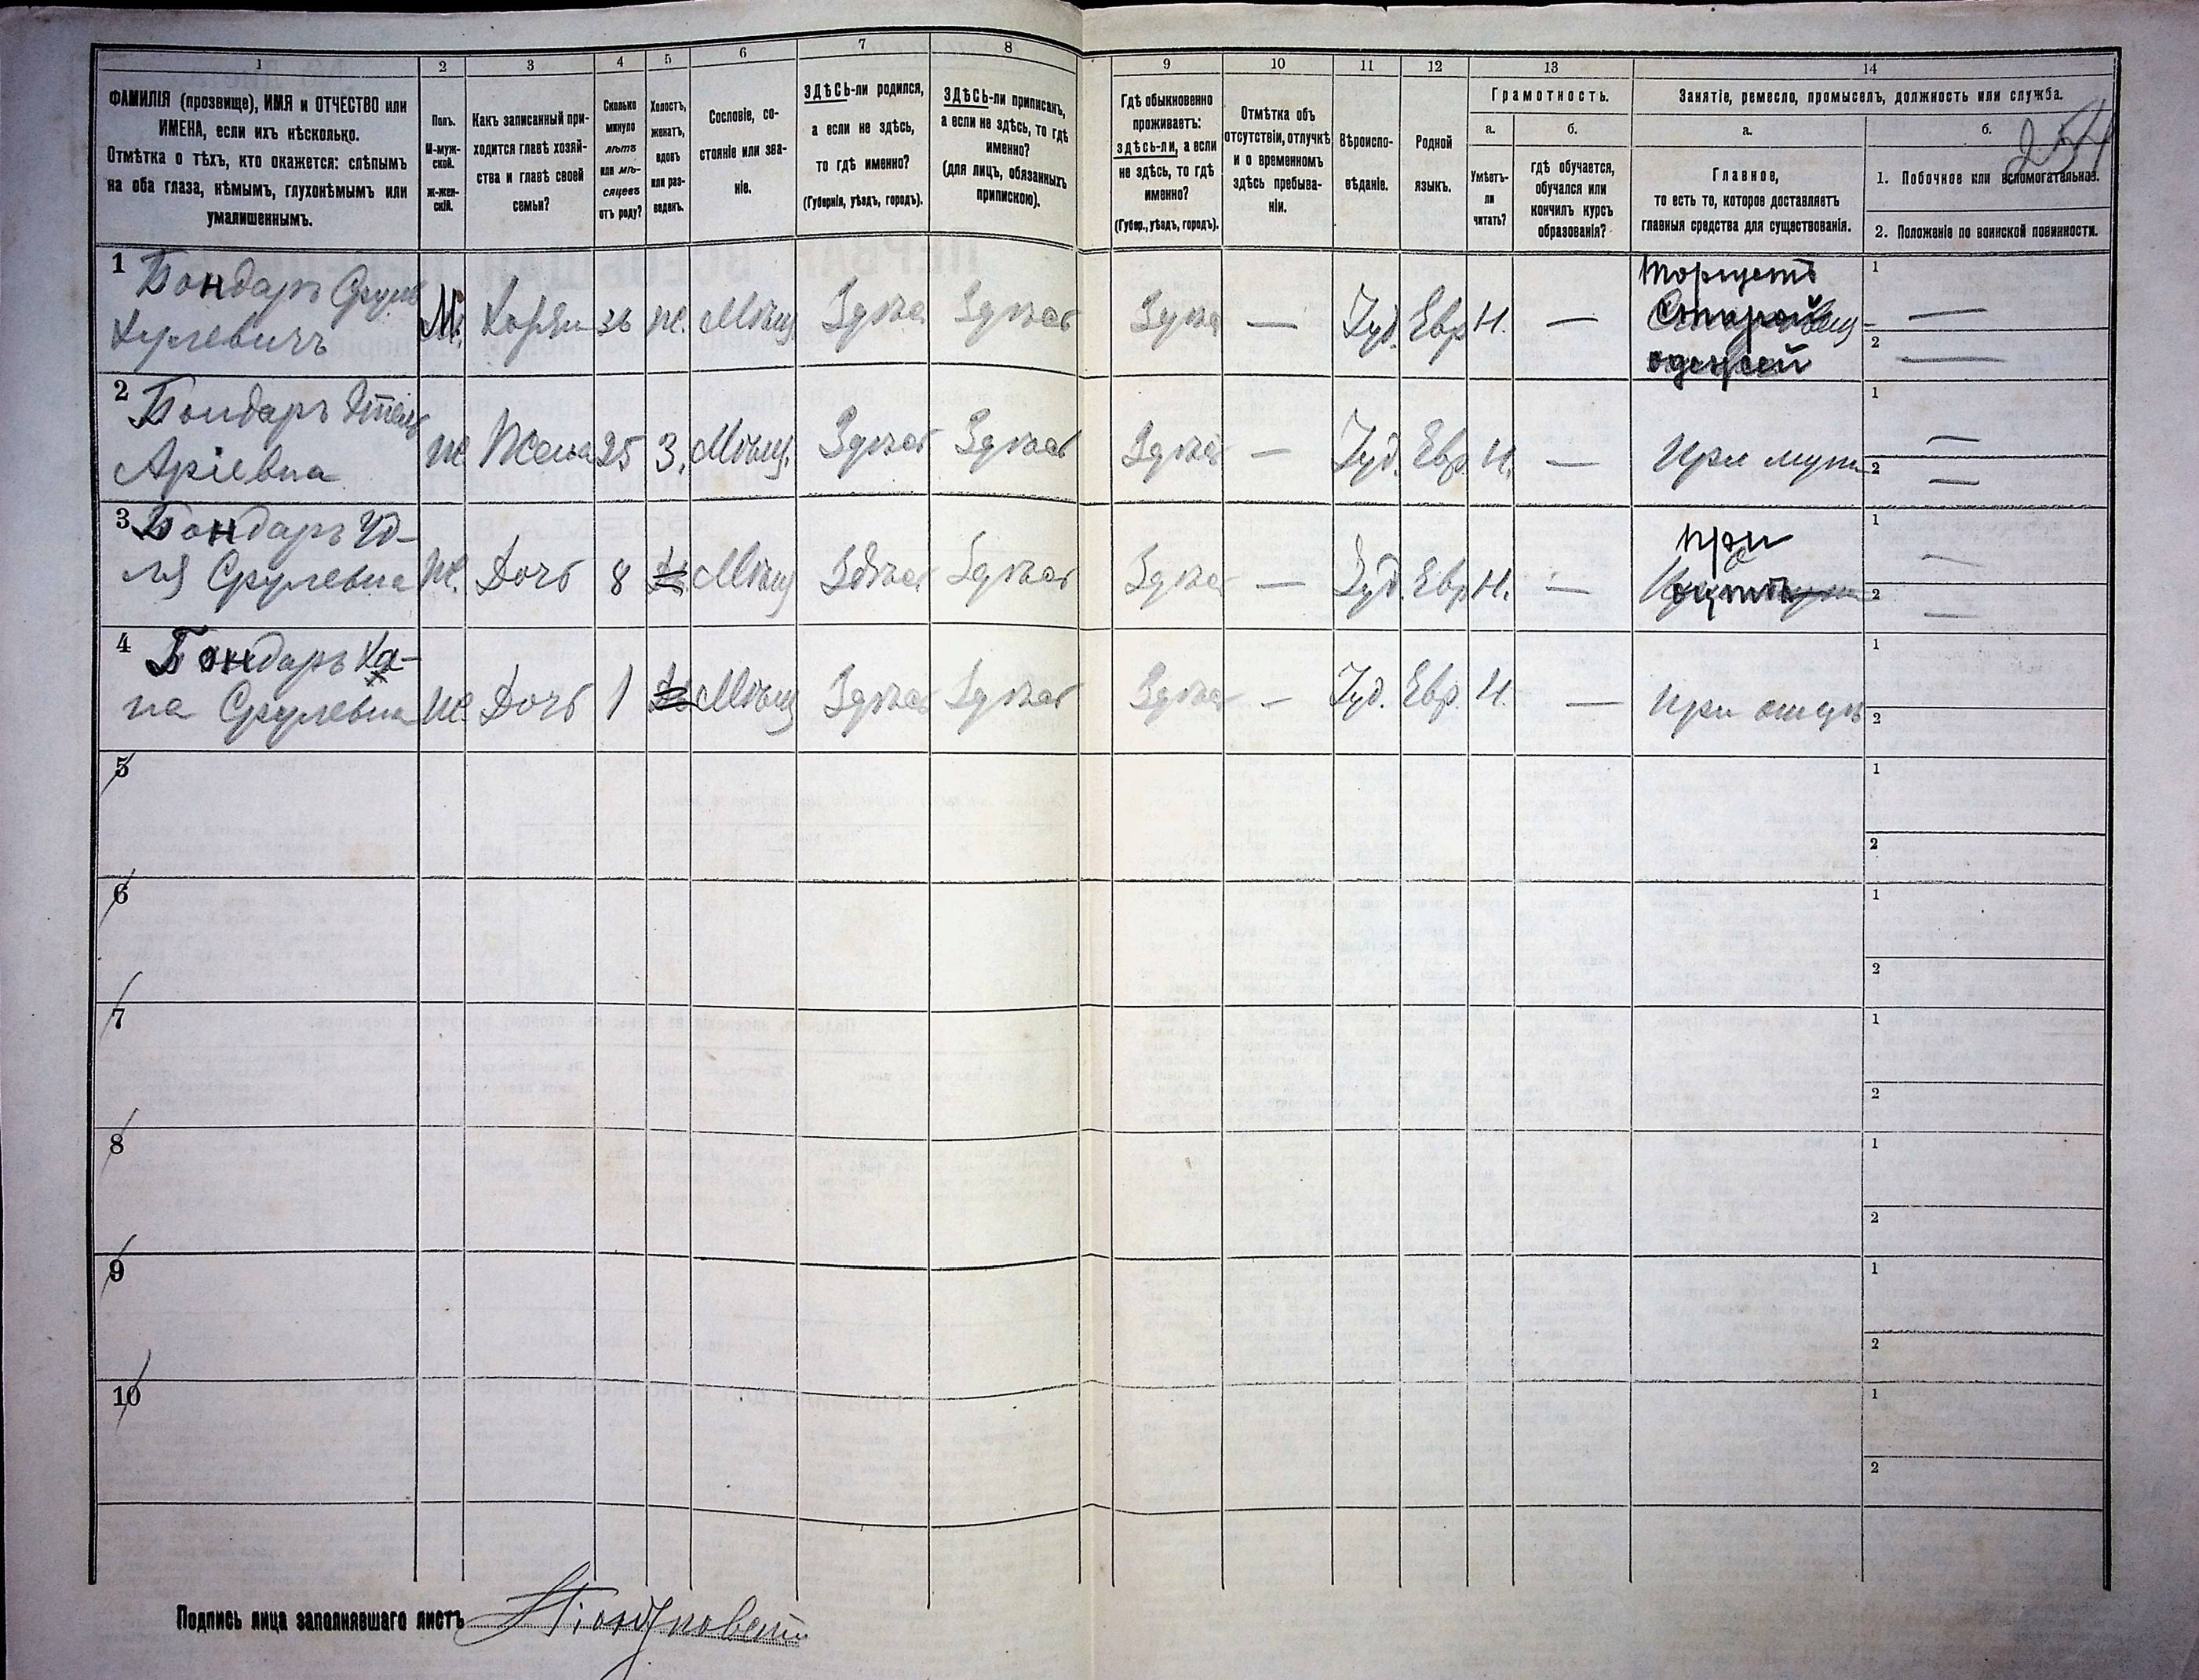 1 2 3 4 5 6 7 8 9 10 11 12 13 14
254
ФАМИЛІЯ (прозвище), ИМЯ и ОТЧЕСТВО или
ИМЕНА, если ихъ нѣсколько.
Отмѣтка о тѣхъ, кто окажется: слѣпымъ
на оба глаза, нѣмымъ, глухонѣмымъ или
умалишеннымъ.
Полъ.
М-муж-
ской.
Ж-жен-
скій.
Какъ записанный при-
ходится главѣ хозяй-
ства и главѣ своей
семьи?
Сколько
минуло
лѣтъ
или мѣ-
сяцевъ
отъ роду?
Холостъ,
женатъ,
вдовъ
или раз-
веденъ.
Сословіе, со-
стояніе или зва-
ніе.
ЗДѢСЬ-ли родился,
а если не здѣсь,
то гдѣ именно?
(Губернія, уѣздъ, городъ).
ЗДѢСЬ-ли приписанъ,
а если не здѣсь, то гдѣ
именно?
(для лицъ, обязанныхъ
припискою).
Гдѣ обыкновенно
проживаетъ:
здѣсь-ли, а если
не здѣсь, то гдѣ
именно?
(Губер., уѣздъ, городъ).
Отмѣтка объ
отсутствіи, отлучкѣ
и о временномъ
здѣсь пребыва-
ніи.
Вѣроиспо-
вѣданіе.
Родной
языкъ.
Грамотность.
а.
Умѣетъ-
ли
читать?
б.
гдѣ обучается,
обучался или
кончилъ курсъ
образованія?
Занятіе, ремесло, промыселъ, должность или служба.
а.
Главное,
то есть то, которое доставляетъ
главныя средства для существованія.
б.
1. Побочное или вспомогательное.
2. Положеніе по воинской повинности.
1 Бондарь Сруль М. Хозяи 36 ж. Мѣщ Здѣсь Здѣсь Здѣсь — Іуд. Евр Н. — торгуетъ 1 —
старой 2 —
одеждой
2 Бондарь Этель
Аріевна Ж Жена 25 З. Мѣщ. Здѣсь Здѣсь Здѣсь — Іуд. Евр. Н. — При муж 1 — 2 —
3 Бондарь Уд-
ля Срулевна Ж. Дочь 8 Мѣщ Здѣсь Здѣсь Здѣсь — Іуд. Евр Н. — при
отцѣ 1 — 2 —
4 Бондарь Ха-
на Срулевна Ж. Дочь 1 Мѣщ Здѣсь Здѣсь Здѣсь — Іуд. Евр. Н. — При отцѣ 1 2
5 1 2
6 1 2
7 1 2
8 1 2
9 1 2
10 1 2
Подпись лица заполнявшаго листъ